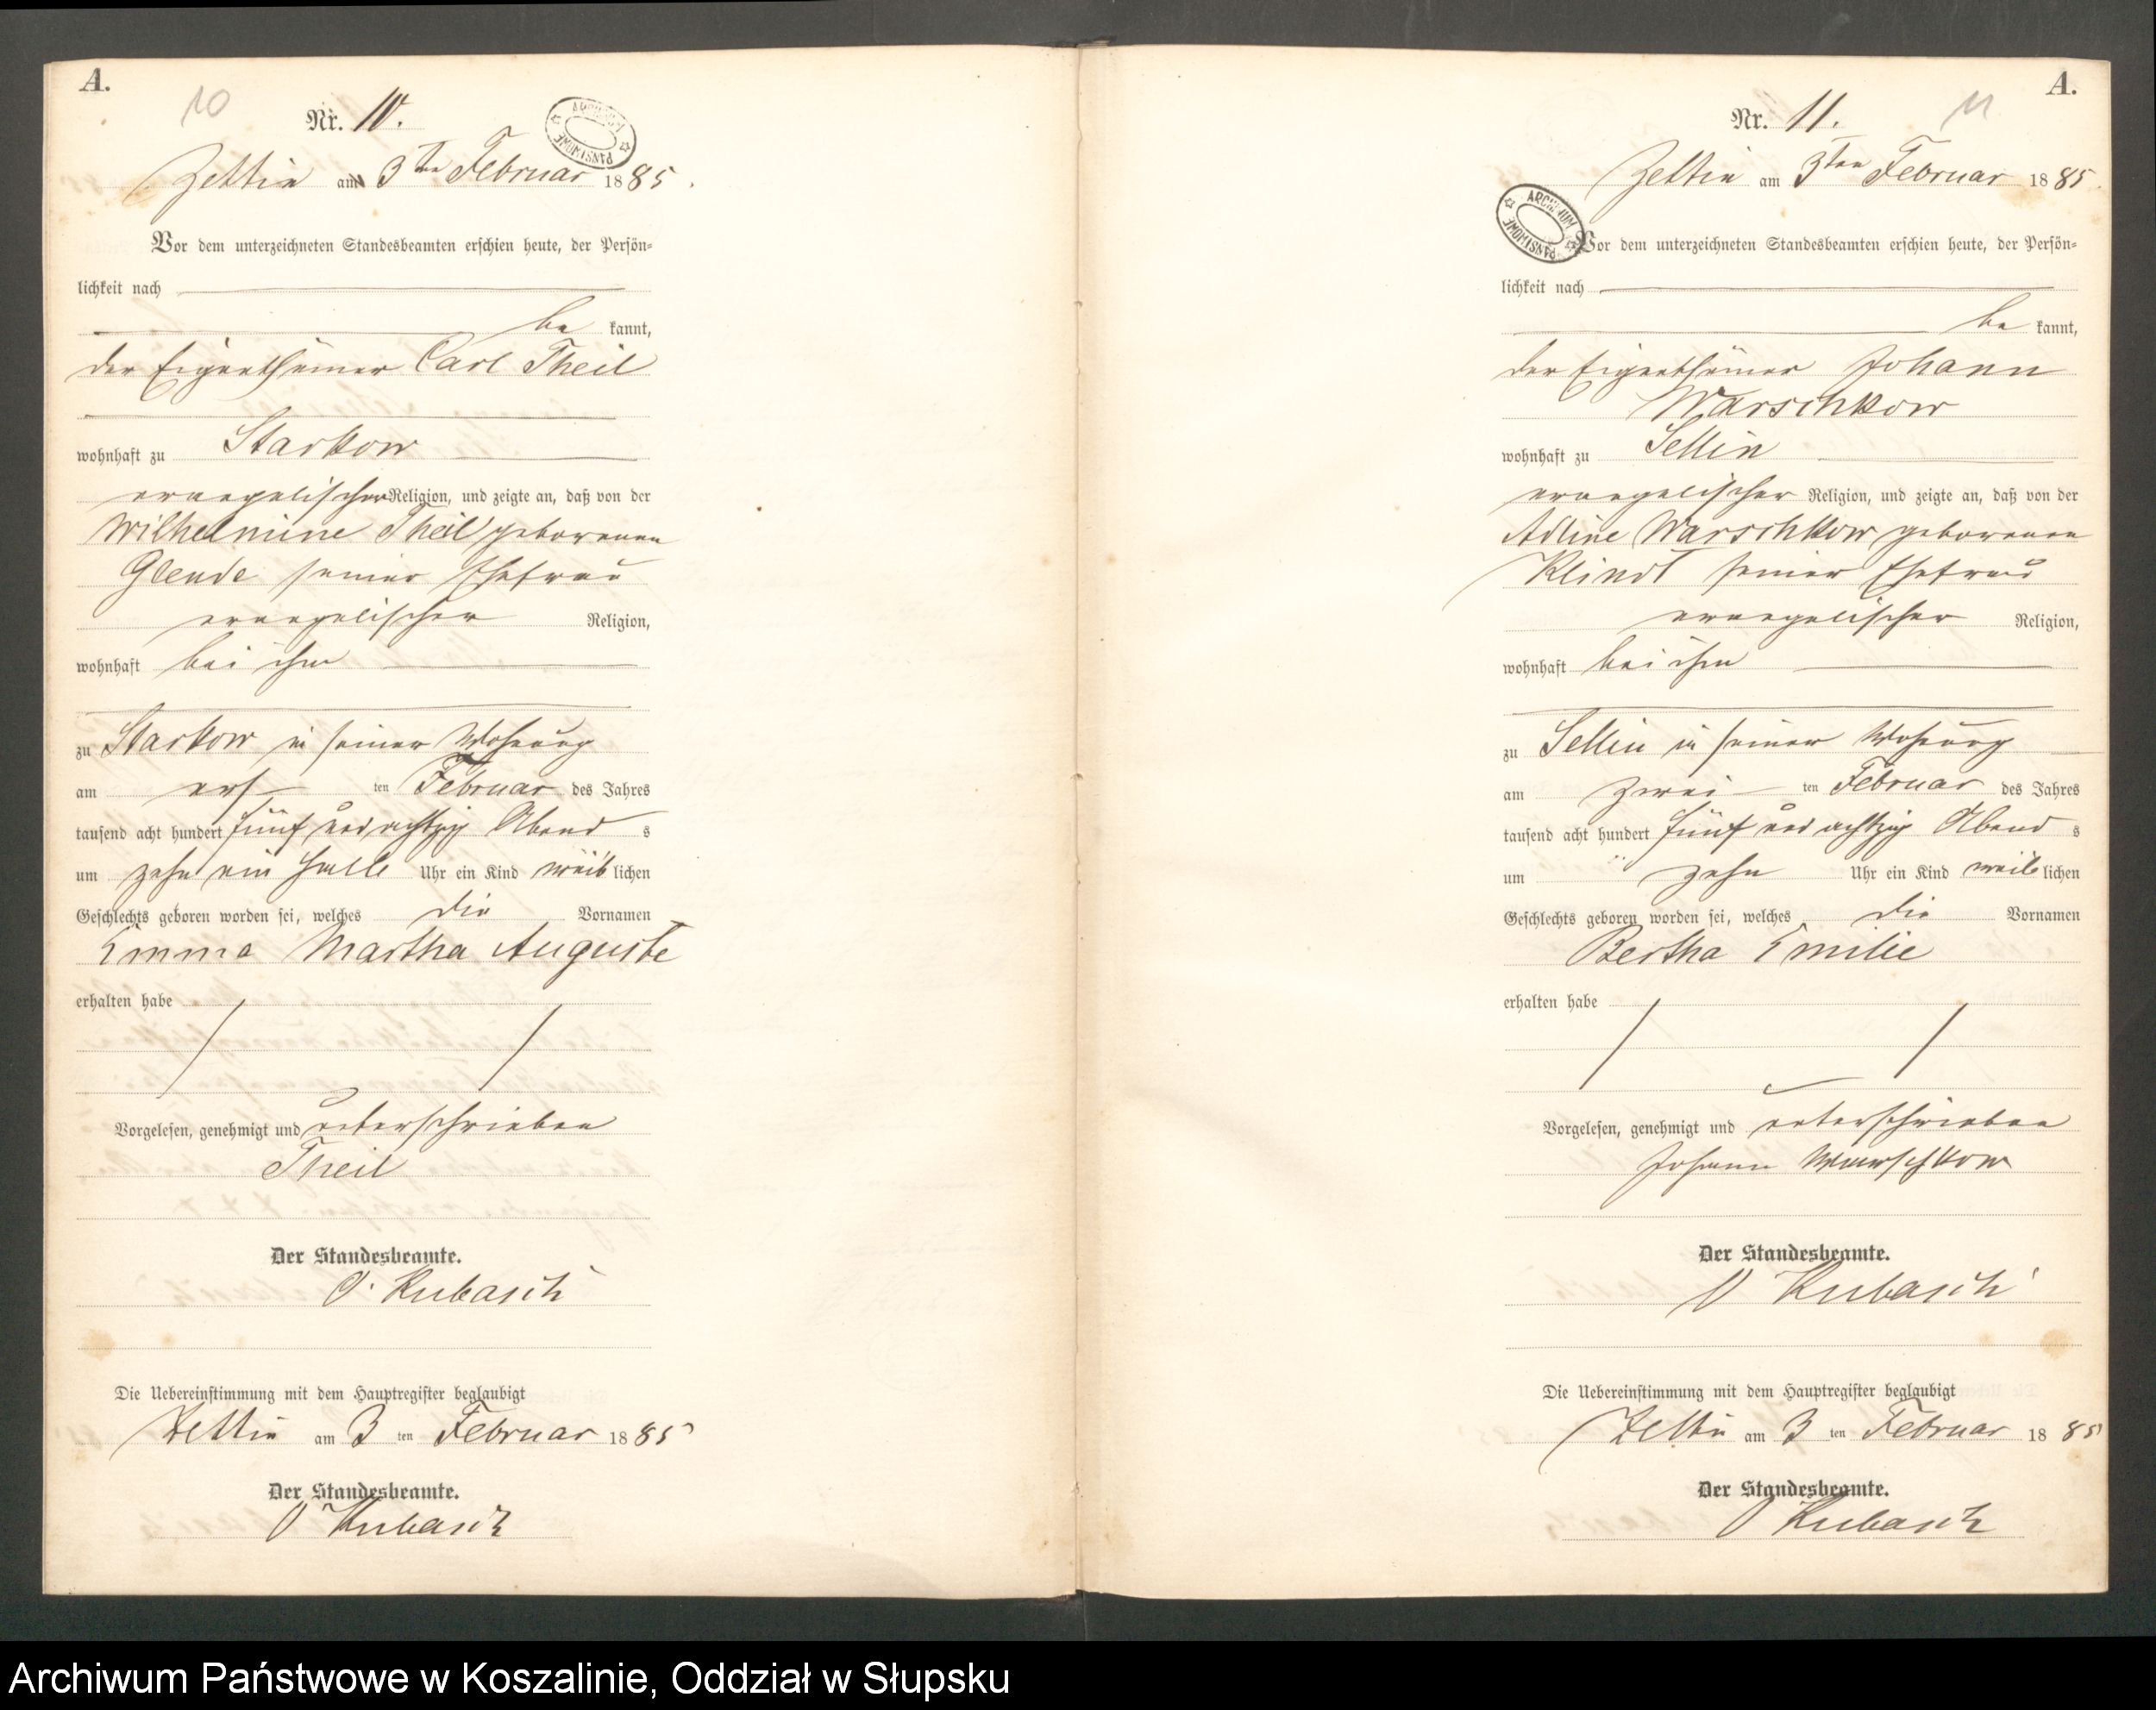 A.
10
Nr. 10.
Zettin am 3ten Februar 1885.
Vor dem unterzeichneten Standesbeamten erschien heute, der Persön-
lichkeit nach
be kannt,
der Eigenthümer Carl Theil
wohnhaft zu Starkow
evangelischer Religion, und zeigte an, daß von der
Wilhelmine Theil geborenen
Glende seiner Ehefrau
evangelischer Religion,
wohnhaft bei ihm
zu Starkow in seiner Wohnung
am ers ten Februar des Jahres
tausend acht hundert fünf und achtzig Abend s
um zehn ein halb Uhr ein Kind weib lichen
Geschlechts geboren worden sei, welches die Vornamen
Emma Martha Auguste
erhalten habe
Vorgelesen, genehmigt und unterschrieben
Theil
Der Standesbeamte.
O. Kubasch
Die Uebereinstimmung mit dem Hauptregister beglaubigt
Zettin am 3 ten Februar 1885
Der Standesbeamte.
O Kubasch
ARCHIWUM PAŃSTWOWE
A.
11
Nr. 11.
Zettin am 3ten Februar 1885.
ARCHIWUM PAŃSTWOWE
Vor dem unterzeichneten Standesbeamten erschien heute, der Persön-
lichkeit nach
be kannt,
der Eigenthümer Johann
Warschkow
wohnhaft zu Sellin
evangelischer Religion, und zeigte an, daß von der
Adline Warschkow geborenen
Klindt seiner Ehefrau
evangelischer Religion,
wohnhaft bei ihm
zu Sellin in seiner Wohnung
am zwei ten Februar des Jahres
tausend acht hundert fünf und achtzig Abend s
um zehn Uhr ein Kind weib lichen
Geschlechts geboren worden sei, welches die Vornamen
Bertha Emilie
erhalten habe
Vorgelesen, genehmigt und unterschrieben
Johann Warschkow
Der Standesbeamte.
O Kubasch
Die Uebereinstimmung mit dem Hauptregister beglaubigt
Zettin am 3 ten Februar 1885
Der Standesbeamte.
O Kubasch
Archiwum Państwowe w Koszalinie, Oddział w Słupsku